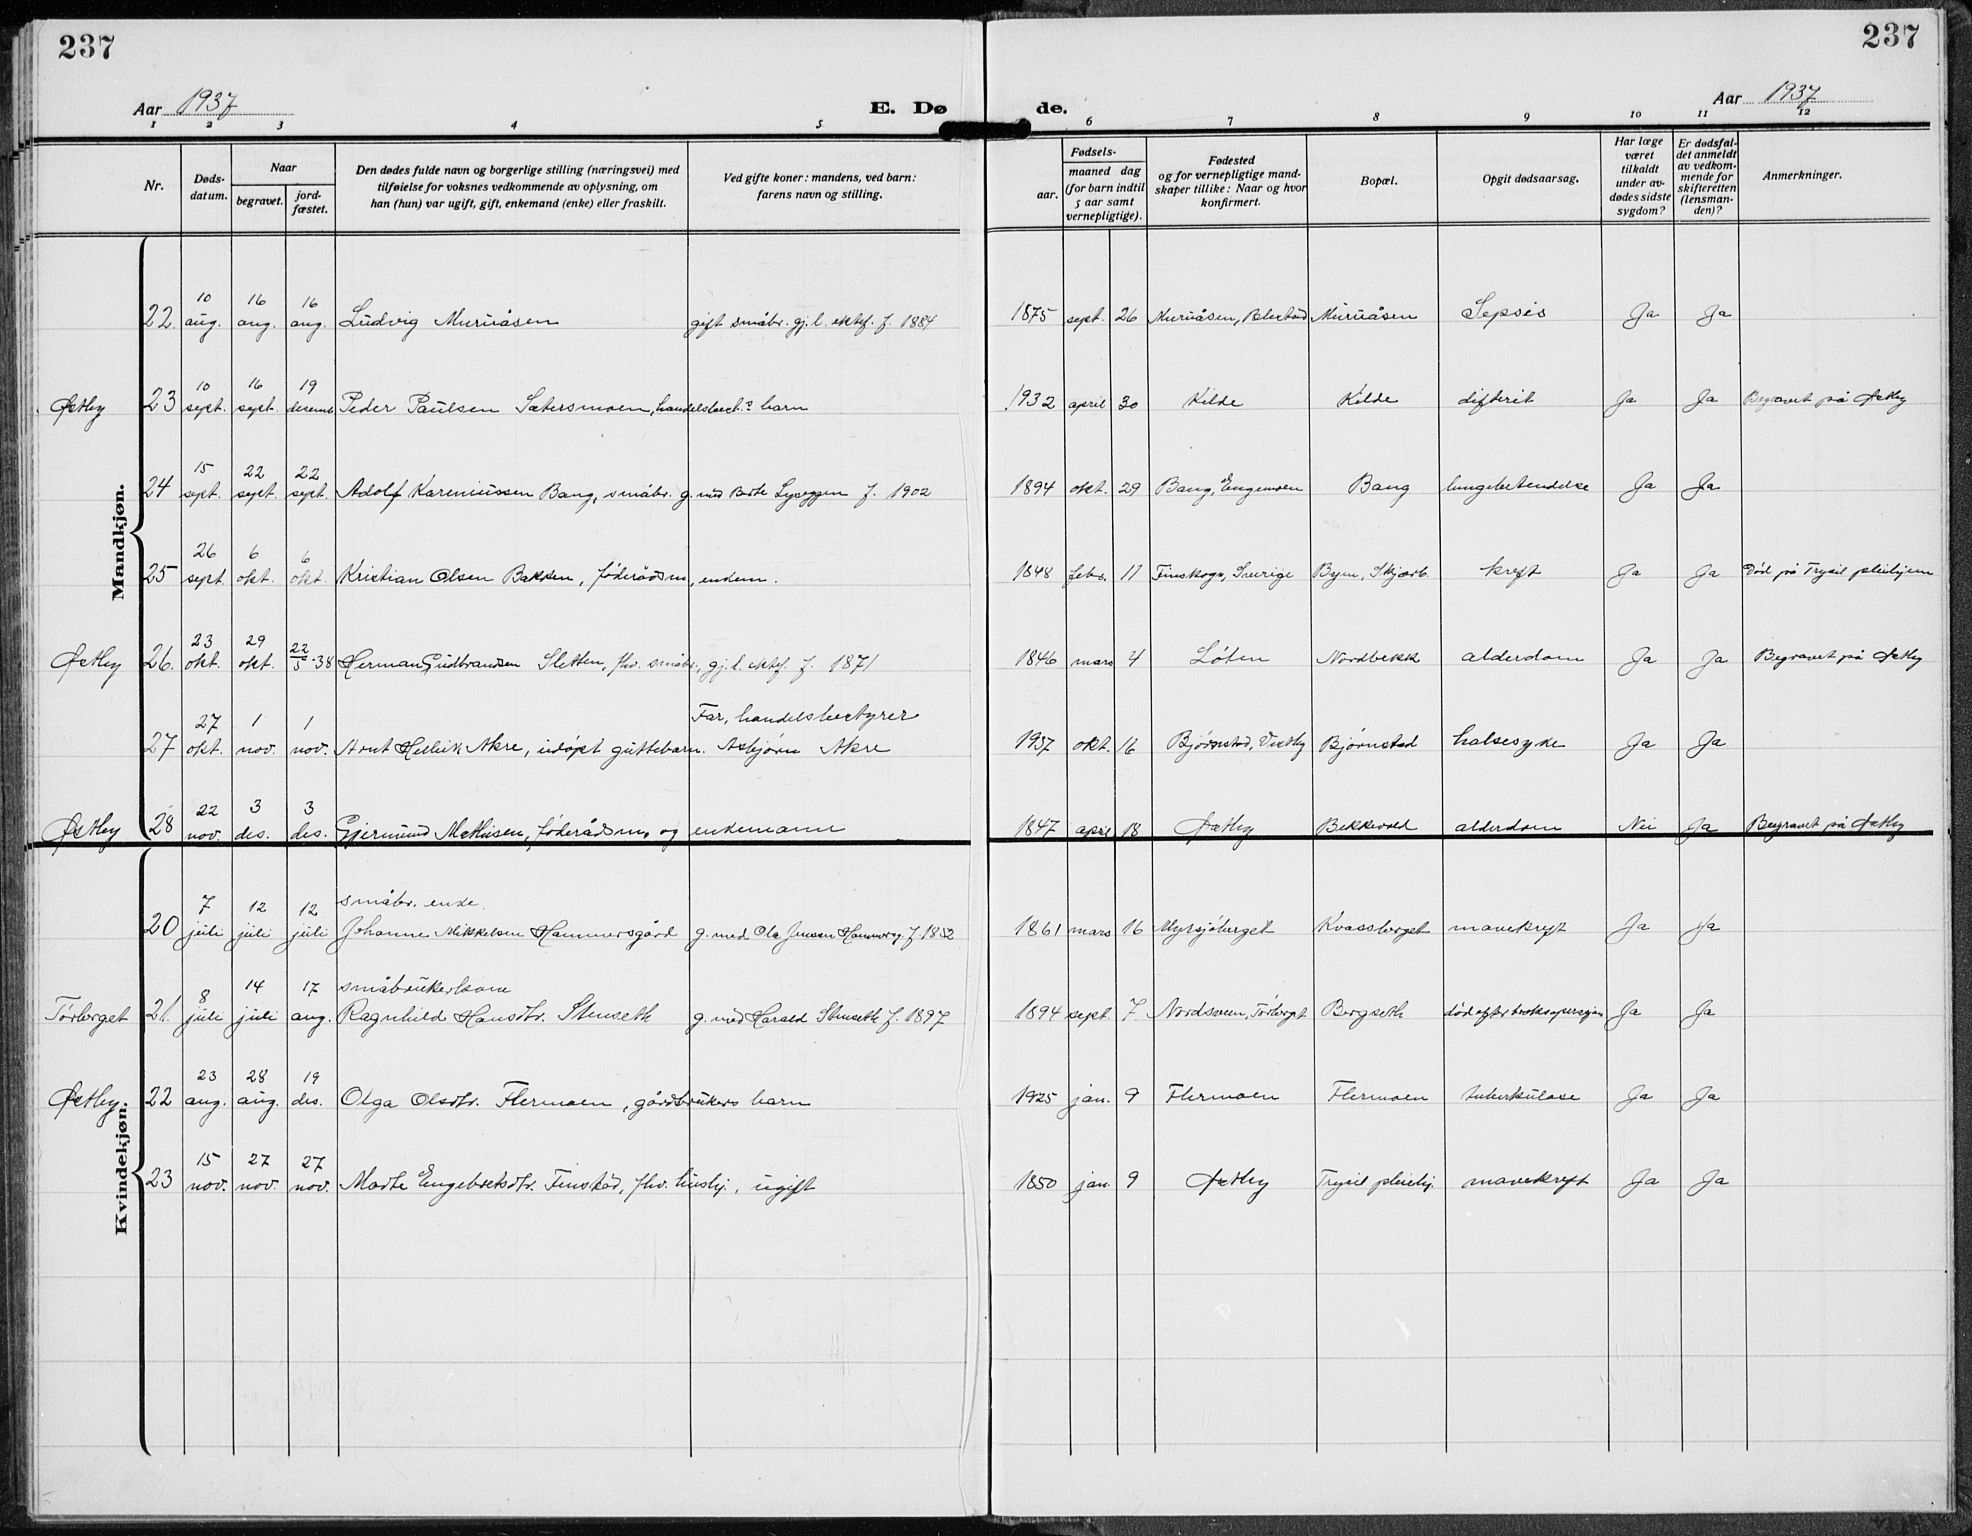 237
237
Aar 1937
E. Dø
de.
Aar 1937
1 2 3 4 5 6 7 8 9 10 11 12
Nr.
Døds-
datum.
Naar
begravet.
jord-
fæstet.
Den dødes fulde navn og borgerlige stilling (næringsvei) med
tilføielse for voksnes vedkommende av oplysning, om
han (hun) var ugift, gift, enkemand (enke) eller fraskilt.
Ved gifte koner: mandens, ved barn:
farens navn og stilling.
Fødsels-
aar.
maaned dag
(for barn indtil
5 aar samt
vernepligtige).
Fødested
og for vernepligtige mand-
skaper tillike: Naar og hvor
konfirmert.
Bopæl.
Opgit dødsaarsag.
Har læge
været
tilkaldt
under av-
dødes sidste
sygdom?
Er dødsfal-
det anmeldt
av vedkom-
mende for
skifteretten
(lensman-
den)?
Anmerkninger.
Mandkjøn.
22. 10 aug. 16 aug. 16 aug. Ludvig Muruåsen gift småbr. gj. l. ektef. f. 1884 1875 sept. 26 Muruåsen, Muruåsen Sepsis Ja Ja
Østby 23 10 sept. 16 sept. 19 Peder Paulsen Sætersmoen, barn 1932 april 30 Kilde Kilde difterit Ja Ja Begravet på Østby
24 15 sept. 22 sept. 22 sept. Adolf Kareniussen Bang, småbr. g. med Berte Lyseggen f. 1902 1894 okt. 29 Bang, Engemoen Bang lungebetendelse Ja Ja
25 26 sept. 6 okt. 6 okt. Kristian Olsen Bakken, føderådsm., enkem. 1848 febr. 11 Finskoga, Sverige Byen, Skjærb. kreft Ja Ja Død på Trysil pleiehjem
Østby 26. 23 okt. 29 okt. 22/5-38 Herman Gudbrandsen Sletten, fhv. småbr., gj. l. ektef. f. 1871 1846 mars 4 Løten Nordbekk alderdom Ja Ja Begravet på Østby
Far, handelsbestyrer
27 27 okt. 1 nov. 1 nov. Arnt Akre, udøpt guttebarn. Asbjørn Akre 1937 okt. 16 Bjørnstad, Vestby Bjørnstad halsesyke Ja Ja
Østby 28 22 nov. 3 des. 3 des. Gjermund Mathisen, føderådsm. og enkemann 1847 april 18 Østby Bekkevold alderdom Nei Ja Begravet på Østby
Kvindekjøn.
småbr. enke.
20 7 juli 12 juli 12 juli Johanne Mikkelsen Hammersgård g. med Ola Jensen Hammersg. f 1852 1861 mars 16 Myrsjøberget Kvassberget mavekreft Ja Ja
småbrukerkone
Tørberget 21. 8 juli 14 juli 17 aug. Ragnhild Hansdtr. Stenseth g. med Harald Stenseth f. 1897 1894 sept. 7 Nordsveen, Tørberget Bergseth død efter brokoperasjon Ja Ja
Østby. 22 23 aug. 28 aug. 19 des. Olga Olsdtr. Flermoen, gårdbrukers barn 1925 jan. 9 Flermoen Flermoen tuberkulose Ja Ja
23 15 nov. 27 nov. 27 nov. Marte Engebretsdtr. Finstad, fhv. hushj., ugift 1850 jan. 9 Østby Trysil pleiehj. mavekreft Ja Ja